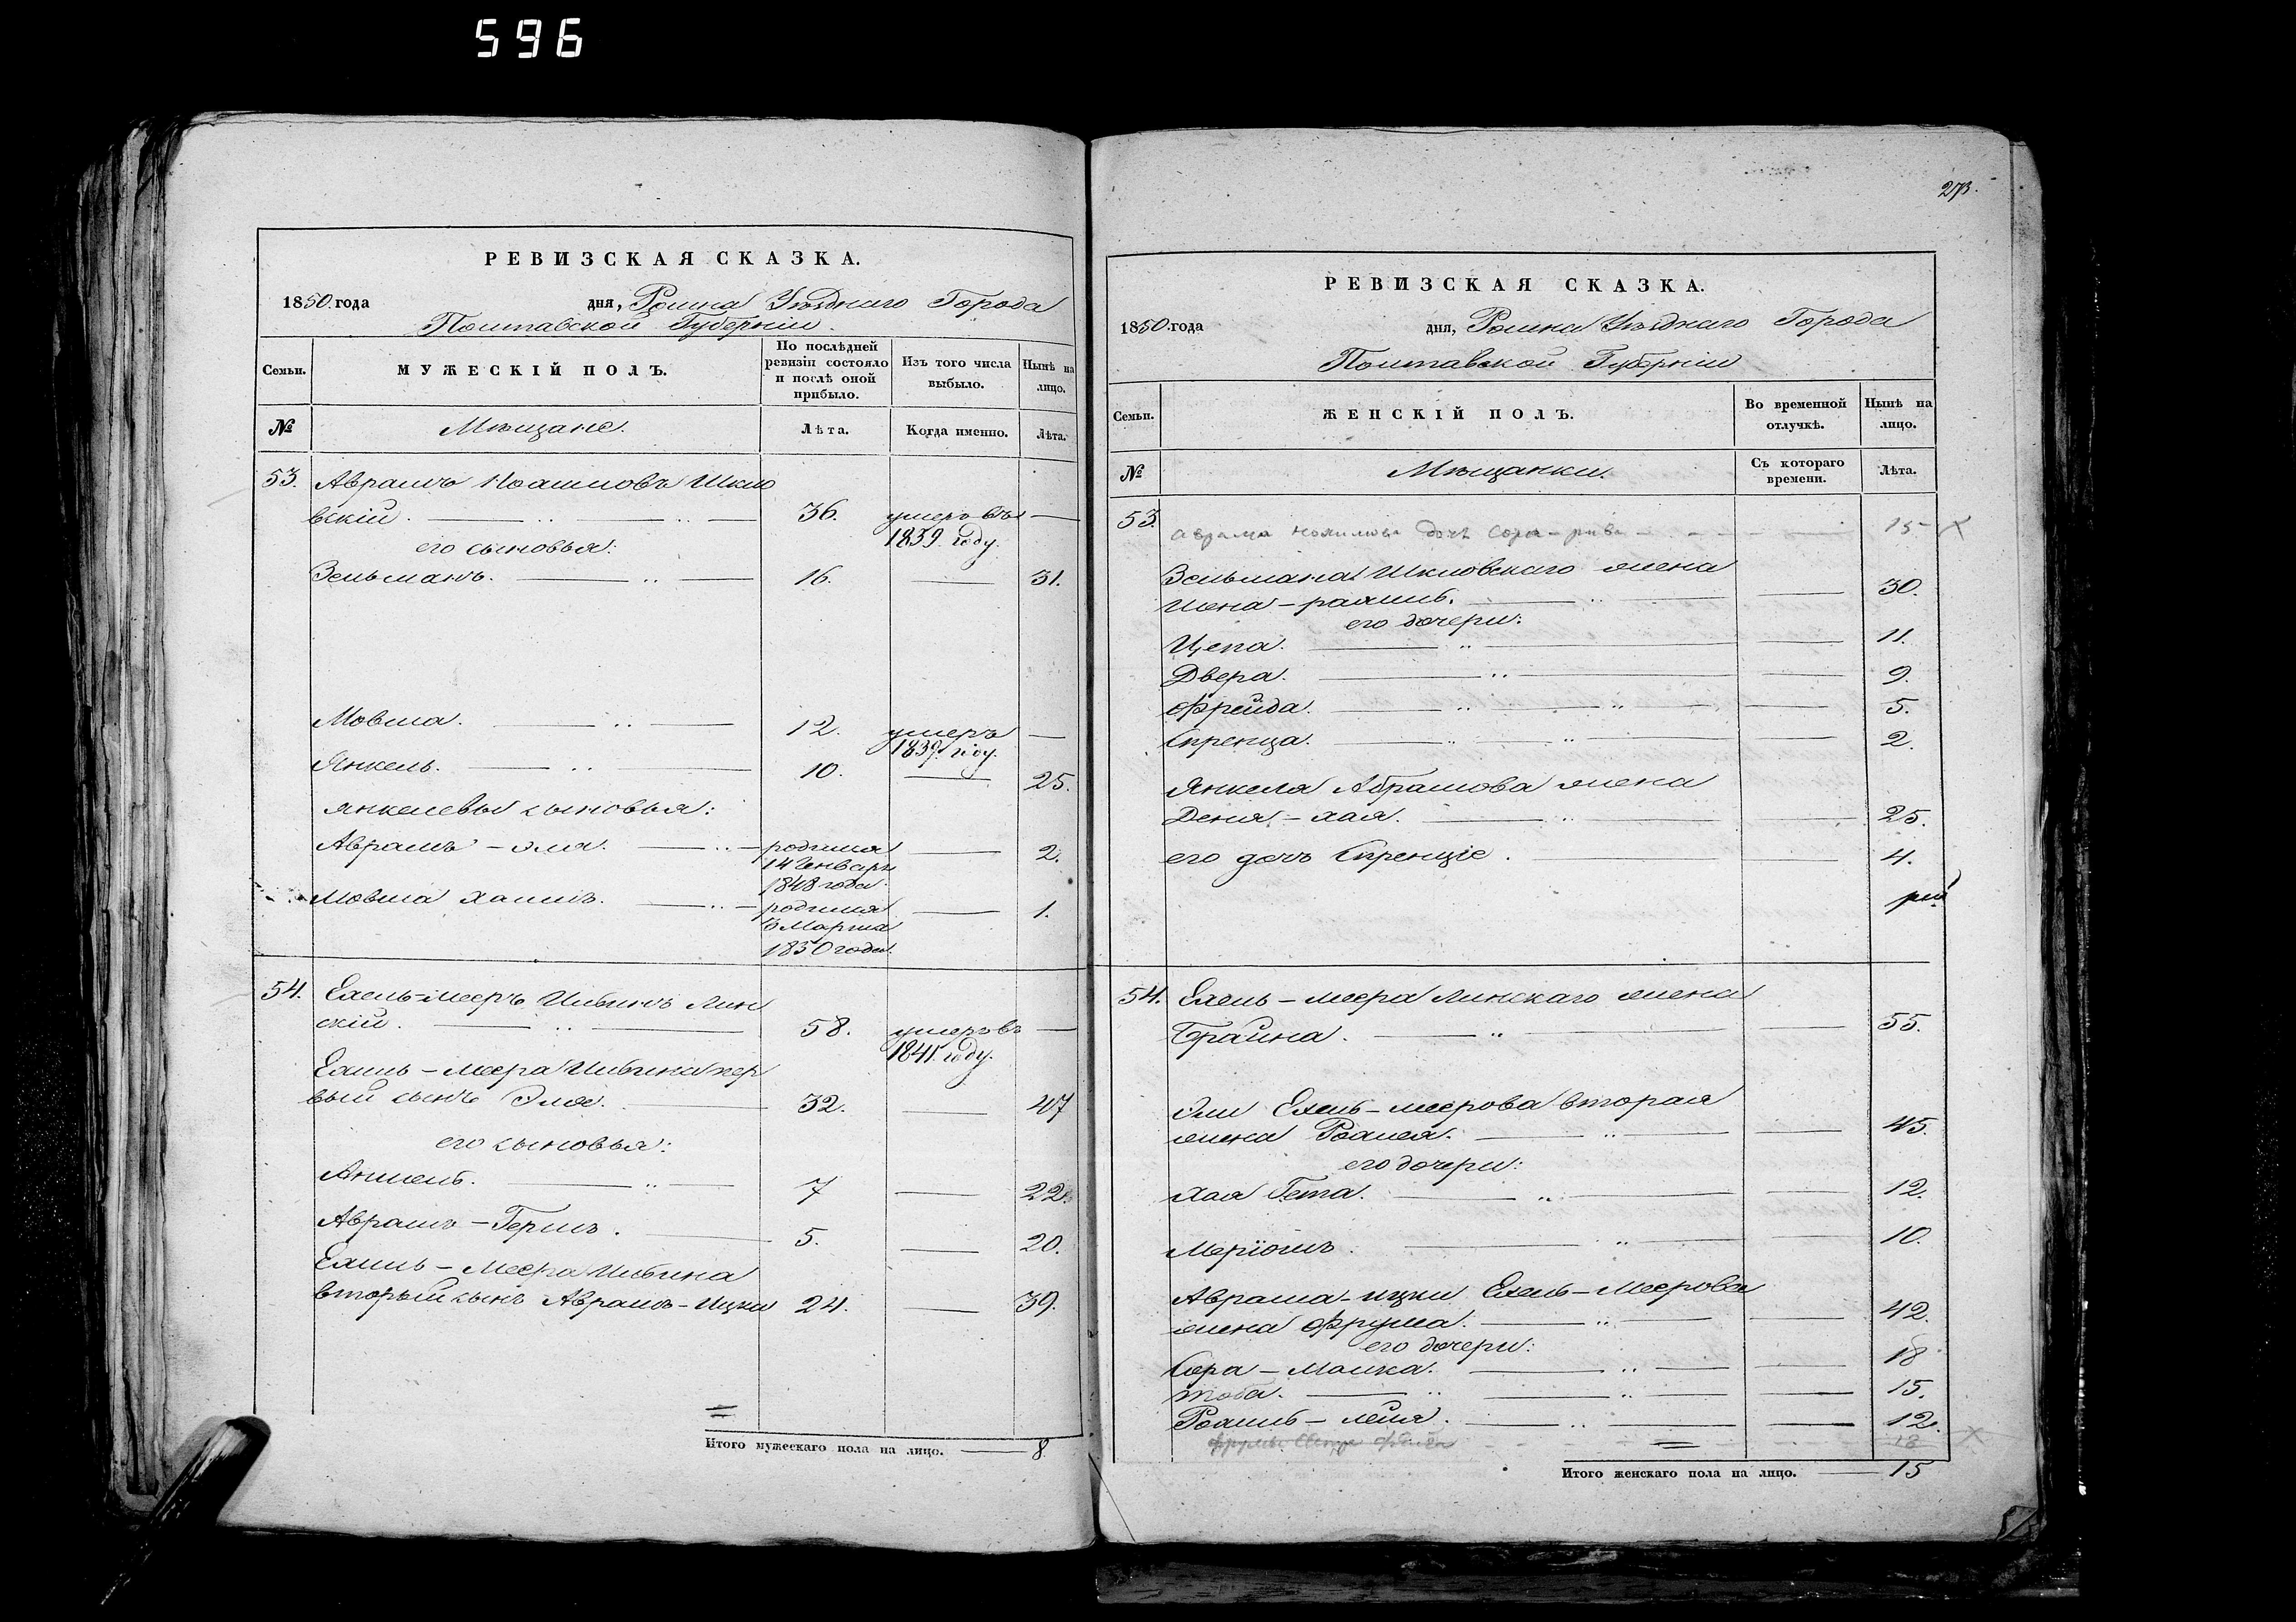 596
РЕВИЗСКАЯ СКАЗКА.
1850. года дня, Ромна Уѣзднаго Города
Полтавской Губерніи.
Семьи. МУЖЕСКІЙ ПОЛЪ. По послѣдней ревизіи состояло и послѣ оной прибыло. Изъ того числа выбыло. Нынѣ на лицо.
№ Мѣщане. Лѣта. Когда именно. Лѣта.
53. Аврамъ Ноахимовъ Шкло
вскій. 36. умеръ въ
1839. году.
его сыновья:
Зельманъ. 16. 31.
Мовша. 12. умеръ
1839. году.
Янкель. 10. 25.
Янкелевы сыновья:
Аврамъ - Эля. родился 2.
14 Генваря
1848 года.
Мовша Хаимъ. родился 1.
5 Марта
1850 года.
54. Ехель-Мееръ Лин
скій. 58. умеръ въ
1841. году.
Ехель - Меера пер
вый сынъ Эля. 32. 47
его сыновья:
Аншель. 7 22.
Аврамъ - Гершъ. 5. 20.
Ехель - Меера
вторый сынъ Аврамъ - Ицка 24. 39.
Итого мужескаго пола на лицо. 8.
273.
РЕВИЗСКАЯ СКАЗКА.
1850. года дня, Ромна Уѣзднаго Города
Полтавской Губерніи
Семьи. ЖЕНСКІЙ ПОЛЪ. Во временной отлучкѣ. Нынѣ на лицо.
№ Мѣщанки. Съ котораго времени. Лѣта.
53. Аврама дочь Сора - рива 15
Зельмана Шкловскаго жена
30.
его дочери:
Цепа. 11.
Двера. 9.
Фрейда. 5.
Спренца. 2.
Янкеля Абрамова жена
Деня - хая. 25.
его дочь Спренціе. 4.
54. Ехель - Меера Линскаго жена
Брайна. 55.
Эли Ехель - Меерова вторая
жена 45.
его дочери:
Хая Гета. 12.
Меріомъ. 10.
Аврама - Ицки Ехель - Меерова
жена Фрума. 42.
его дочери:
Сора - Малка. 18
Тоба. 15.
Рохиль - лея. 12.
Итого женскаго пола на лицо. 15